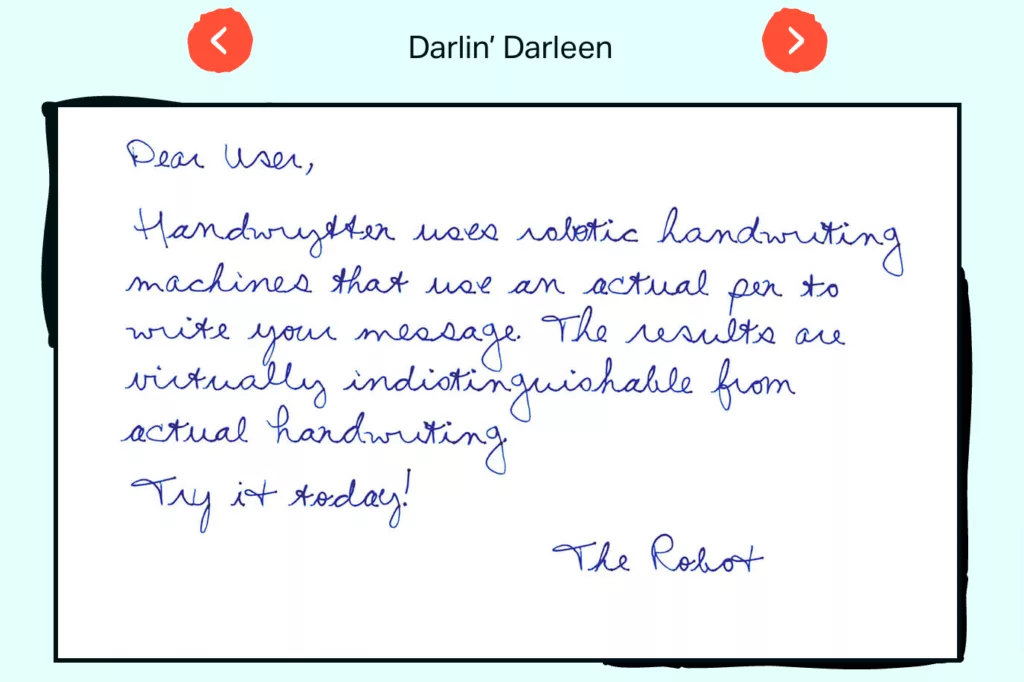 Darlin’ Darleen
Dear User,
Handwrytten uses robotic handwriting
machines that use an actual pen to
write your message. The results are
virtually indistinguishable from
actual handwriting.
Try it today!
The Robot